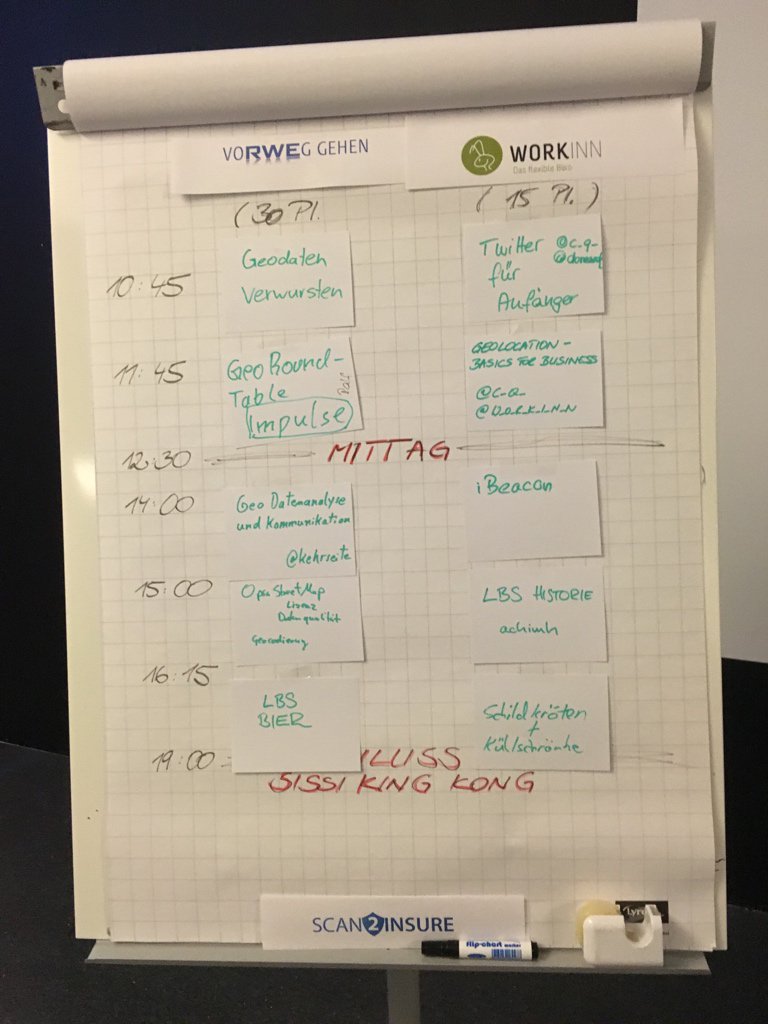 VORWEG GEHEN
WORKINN
Das flexible Büro
(30 Pl.
(15 Pl.)
10:45
Geodaten
Verwursten
Twitter @c_q_
für
Anfänger
11:45
GeoRound-
Table
Impulse
GEOLOCATION -
BASICS FOR BUSINESS
@C_Q_
@D_O_R_K_I_N_N
12:30
MITTAG
14:00
Geo Datenanalyse
und Kommunikation
@kehrseite
iBeacon
15:00
OpenStreetMap
Lizenz
Datenqualität
Geocodierung
LBS HISTORIE
achimh
16:15
LBS
BIER
Schildkröten
+
Küllschränke
19:00
LUSS
SISSI KING KONG
SCAN2INSURE
flip-chart marker